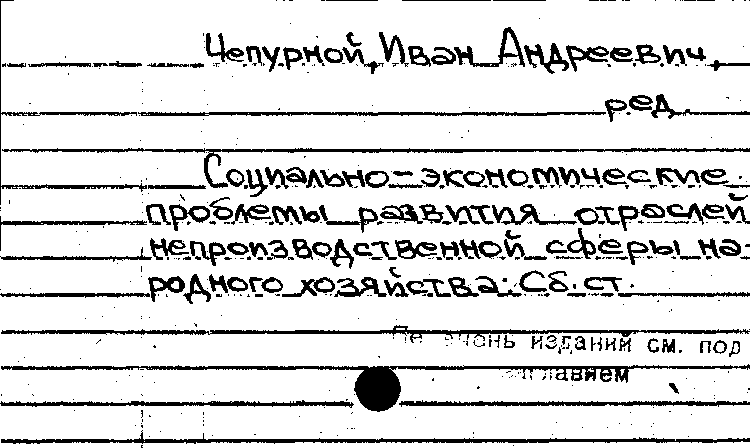 Чепурной, Иван Андреевич,
ред.
Социально-экономические
проблемы развития отраслей
непроизводственной сферы на-
родного хозяйства: Сб. ст.
изданий см. под